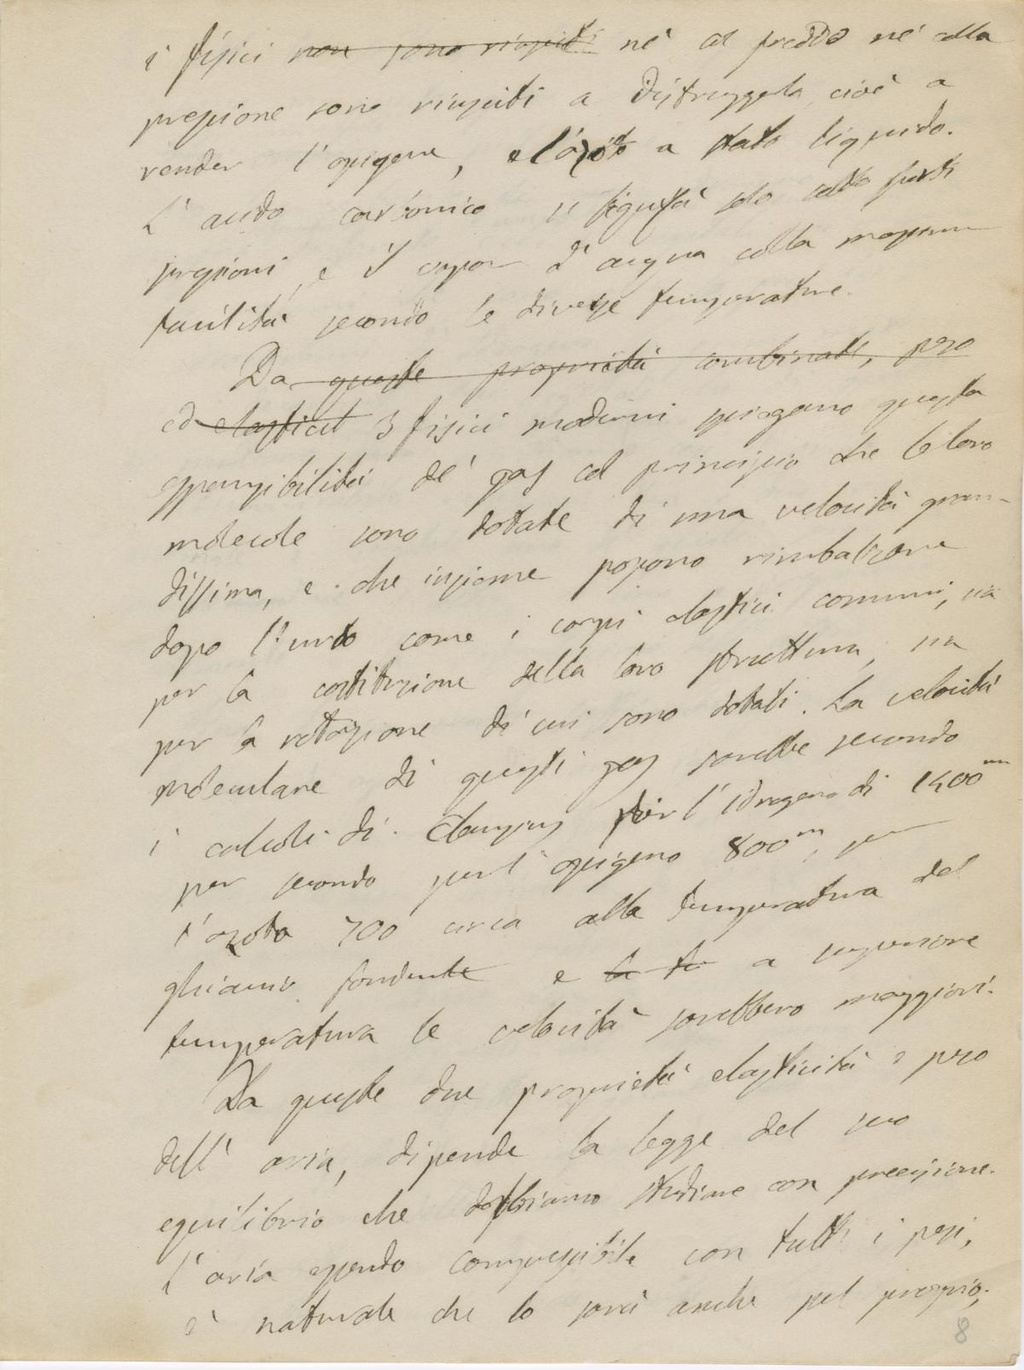 i fisici non sono riusciti nè col freddo nè colla
pressione sono riusciti a distruggerla cioè a
render l'ossigene, e l'azoto a stato liquido.
L'acido carbonico si liquefà solo sotto forti
pressioni, e il vapor d'acqua colla massima
facilità secondo le diverse temperature.
Da queste proprietà combinate, peso
ed elasticit I fisici moderni spiegano questa
espansibilità de' gas col principio che le loro
molecole sono dotate di una velocità gran-
dissima, e che insieme possono rimbalzare
dopo l'urto come i corpi elastici comuni, sia
per la costituzione della loro struttura, sia
per la rotazione di cui sono dotati. La velocità
molecolare di questi gas sarebbe secondo
i calcoli di Clausius per l'idrogeno di 1800 m
per secondo per l'ossigeno 800m, per
l'azoto 700 circa alla temperatura del
ghiaccio fondente e a superiore
temperatura le velocità sarebbero maggiori.
Da queste due proprietà elasticità e peso
dell'aria, dipende la legge del suo
equilibrio che dobbiamo studiare con precisione.
L'aria essendo compressibile con tutti i pesi,
è naturale che lo sarà anche pel proprio;
8